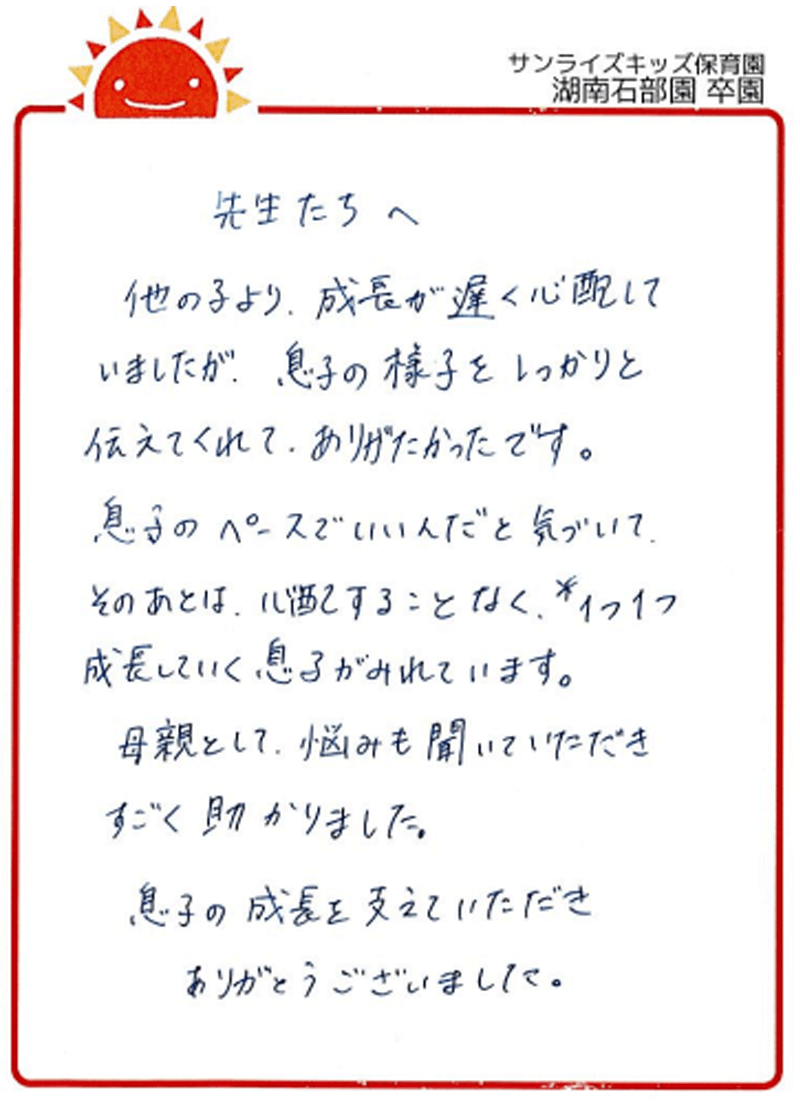 サンライズキッズ保育園
湖南石部園 卒園
先生たちへ
他の子より、成長が遅く心配して
いましたが、息子の様子をしっかりと
伝えてくれて、ありがたかったです。
息子のペースでいいんだと気づいて、
そのあとは、心配することなく、*1つ1つ
成長していく息子がみれています。
母親として、悩みも聞いていただき
すごく助かりました。
息子の成長を支えていただき
ありがとうございました。